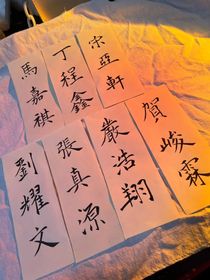 馬嘉祺
丁程鑫
宋亞軒
劉耀文
張真源
嚴浩翔
賀峻霖